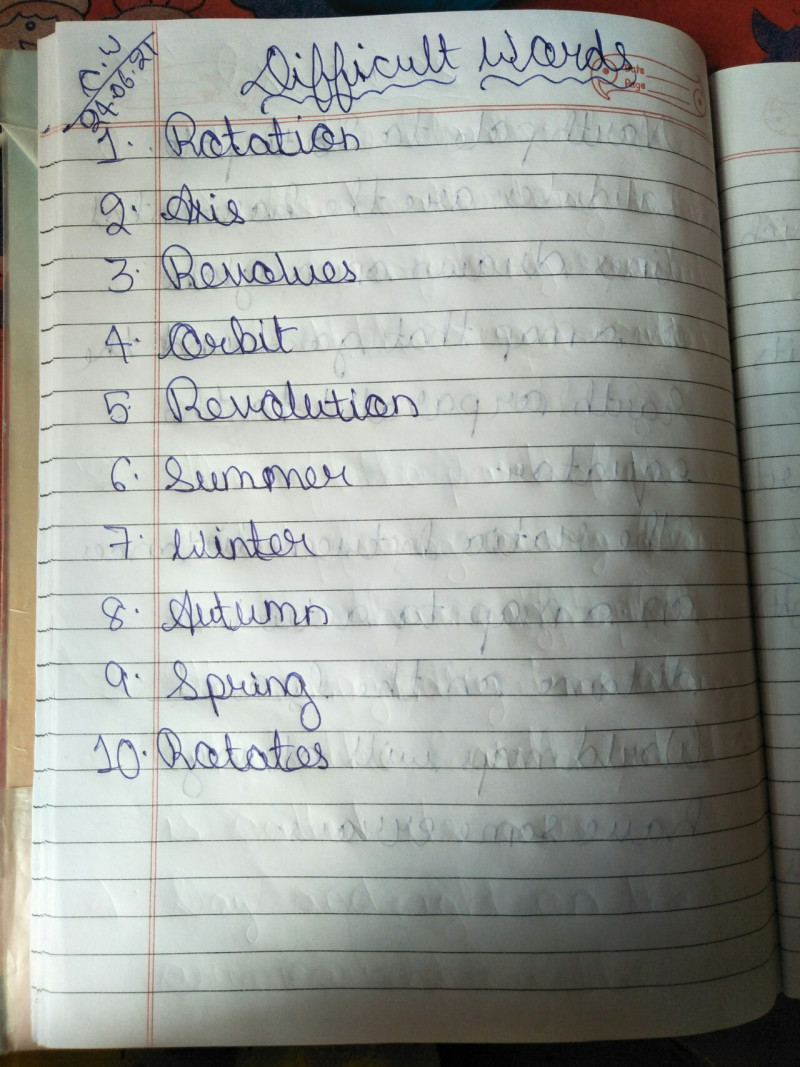 C.W
24.06.21
Difficult Words
Date
Page
1. Rotation
2. Axis
3. Revolves
4. Orbit
5. Revolution
6. Summer
7. Winter
8. Autumn
9. Spring
10. Rotates